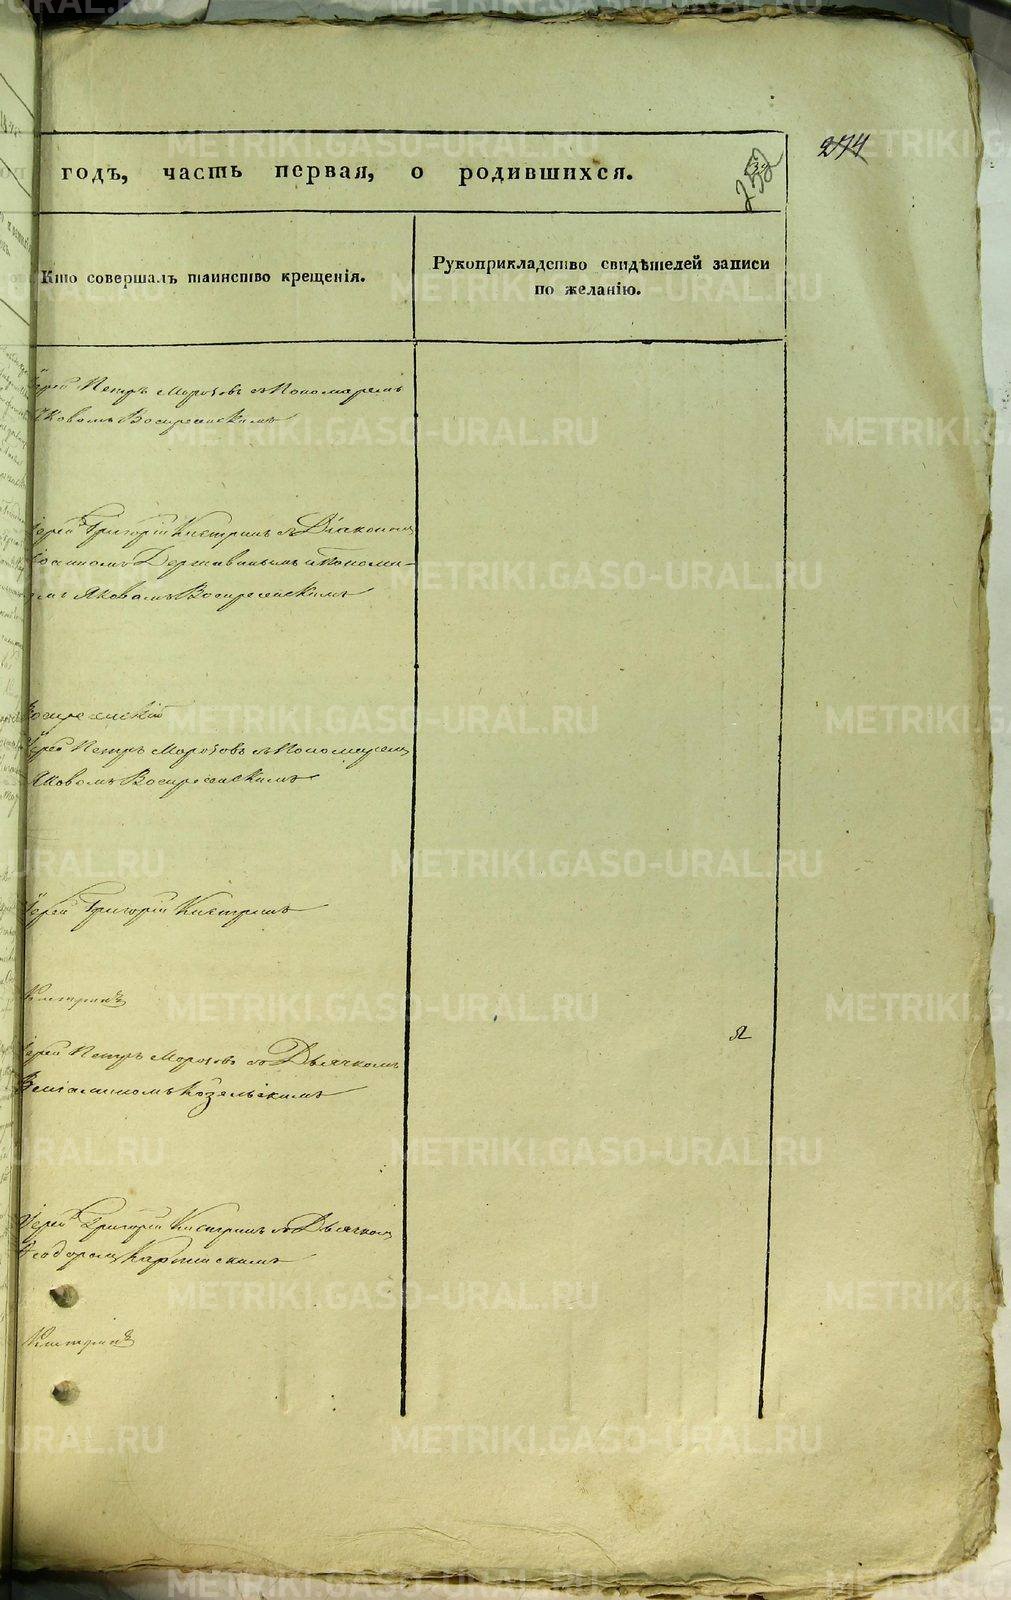 274
232
годъ, часть первая, о родившихся.
Кто совершалъ таинство крещенія.
Рукоприкладство свидѣтелей записи
по желанію.
Іерей Петръ Морозовъ съ Пономаремъ
Яковомъ Воскресенскимъ
Іерей Григорій Кистринъ съ Діакономъ
Іоанномъ Державинымъ и Пономо-
емъ Яковомъ Воскресенскимъ
Воскресенскій
Іерей Петръ Морозовъ съ Пономаремъ
Яковомъ Воскресенскимъ
Іерей Григорій Кистринъ
Кистринъ
Іерей Петръ Морозовъ со Дьячкомъ
Веніаминомъ Козельскимъ
Іерей Григорій Кистринъ съ Дьячкомъ
Ѳеодоромъ Карпинскимъ
Кистринъ
METRIKI.GASO-URAL.RU